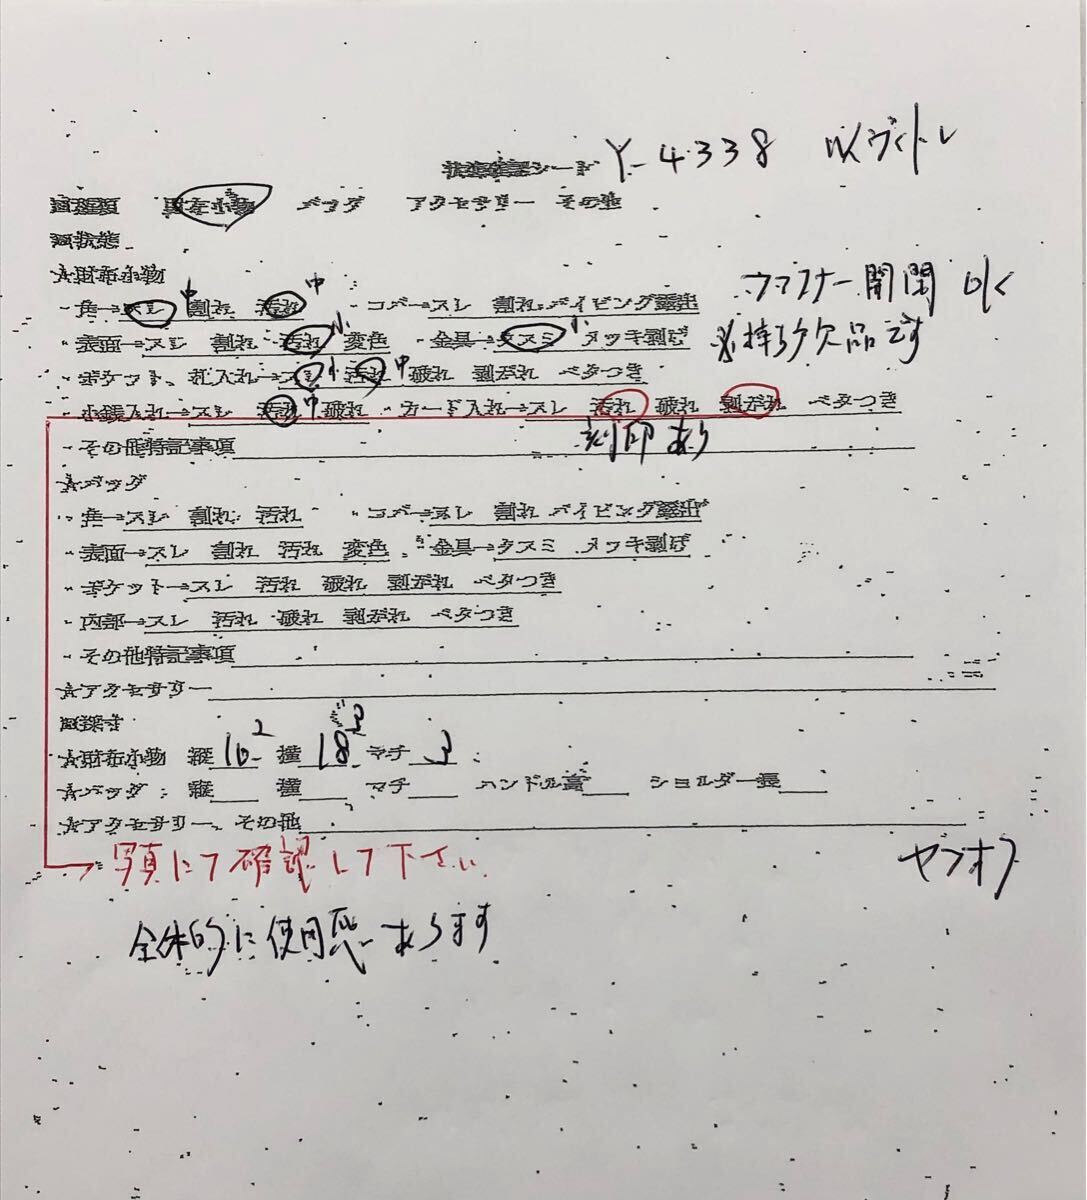 状態確認シート Y-4338 ルイヴィトン
□種類 財布小物 バッグ アクセサリー その他
□状態
☆財布小物
・角→スレ 中 割れ 汚れ 中 ・コバ→スレ 割れ パイピング露出
ファスナー開閉 OK
・表面→スレ 割れ 汚れ 小 変色 ・金具→クスミ 小 メッキ剥げ
※持ち欠品です
・ポケット、札入れ→スレ 小 汚れ 中 破れ 剥がれ ベタつき
・小銭入れ→スレ 汚れ 中 破れ ・カード入れ→スレ 汚れ 破れ 剥がれ ベタつき
・その他特記事項 刻印あり
☆バッグ
・角→スレ 割れ 汚れ ・コバ→スレ 割れ パイピング露出
・表面→スレ 割れ 汚れ 変色 ・金具→クスミ メッキ剥げ
・ポケット→スレ 汚れ 破れ 剥がれ ベタつき
・内部→スレ 汚れ 破れ 剥がれ ベタつき
・その他特記事項
☆アクセサリー
□採寸
☆財布小物 縦 10.2 横 18.3 マチ 3
☆バッグ：縦 横 マチ ハンドル高 ショルダー長
☆アクセサリー、その他
写真にて確認して下さい
ヤフオフ
全体的に使用感あります